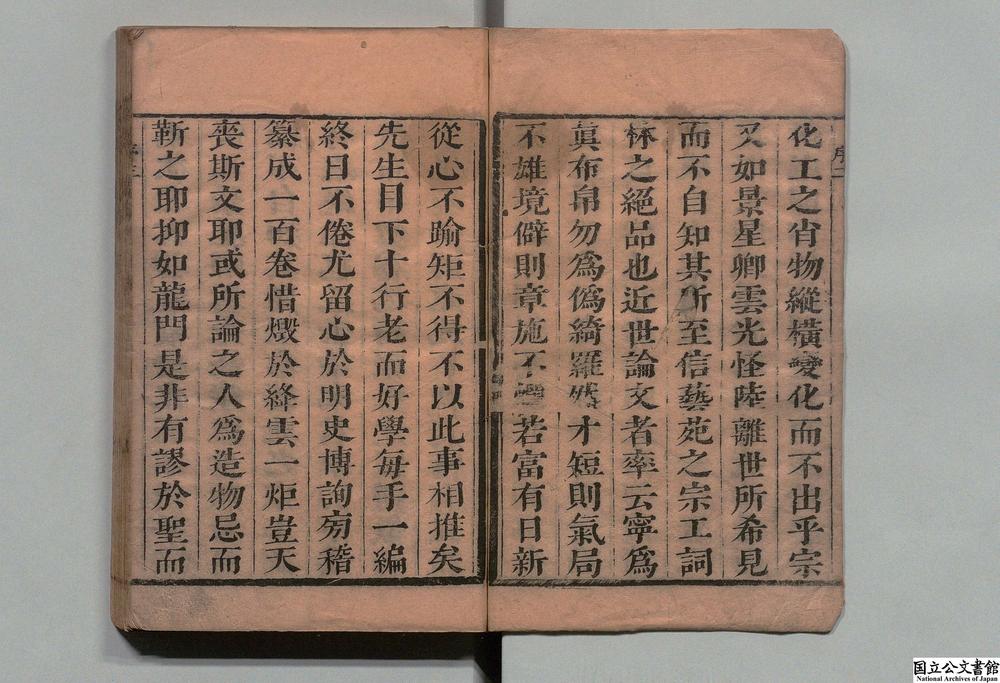 化工之肖物縱橫變化而不出乎宗
又如景星卿雲光怪陸離世所希見
而不自知其所至信藝苑之宗工詞
林之絕品也近世論文者率云寧爲
眞布帛勿爲僞綺羅然才短則氣局
不雄境僻則章施不 若富有日新
從心不踰矩不得不以此事相推矣
先生目下十行老而好學每手一編
終日不倦尤留心於明史博詢旁稽
纂成一百卷惜燬於絳雲一炬豈天
喪斯文耶或所論之人爲造物忌而
靳之耶抑如龍門是非有謬於聖而
序二
序三
国立公文書館
National Archives of Japan